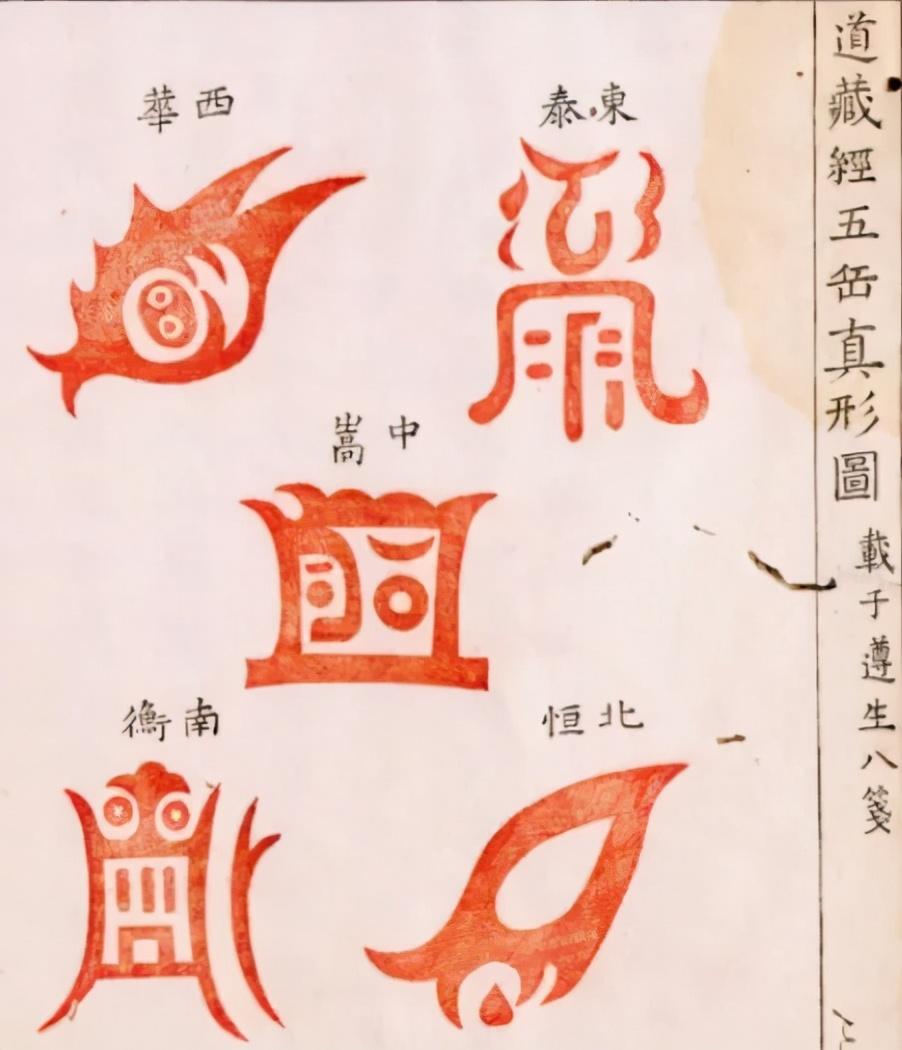 道藏經五岳真形圖
載子遵生八箋
東泰
西華
中嵩
北恒
南衡